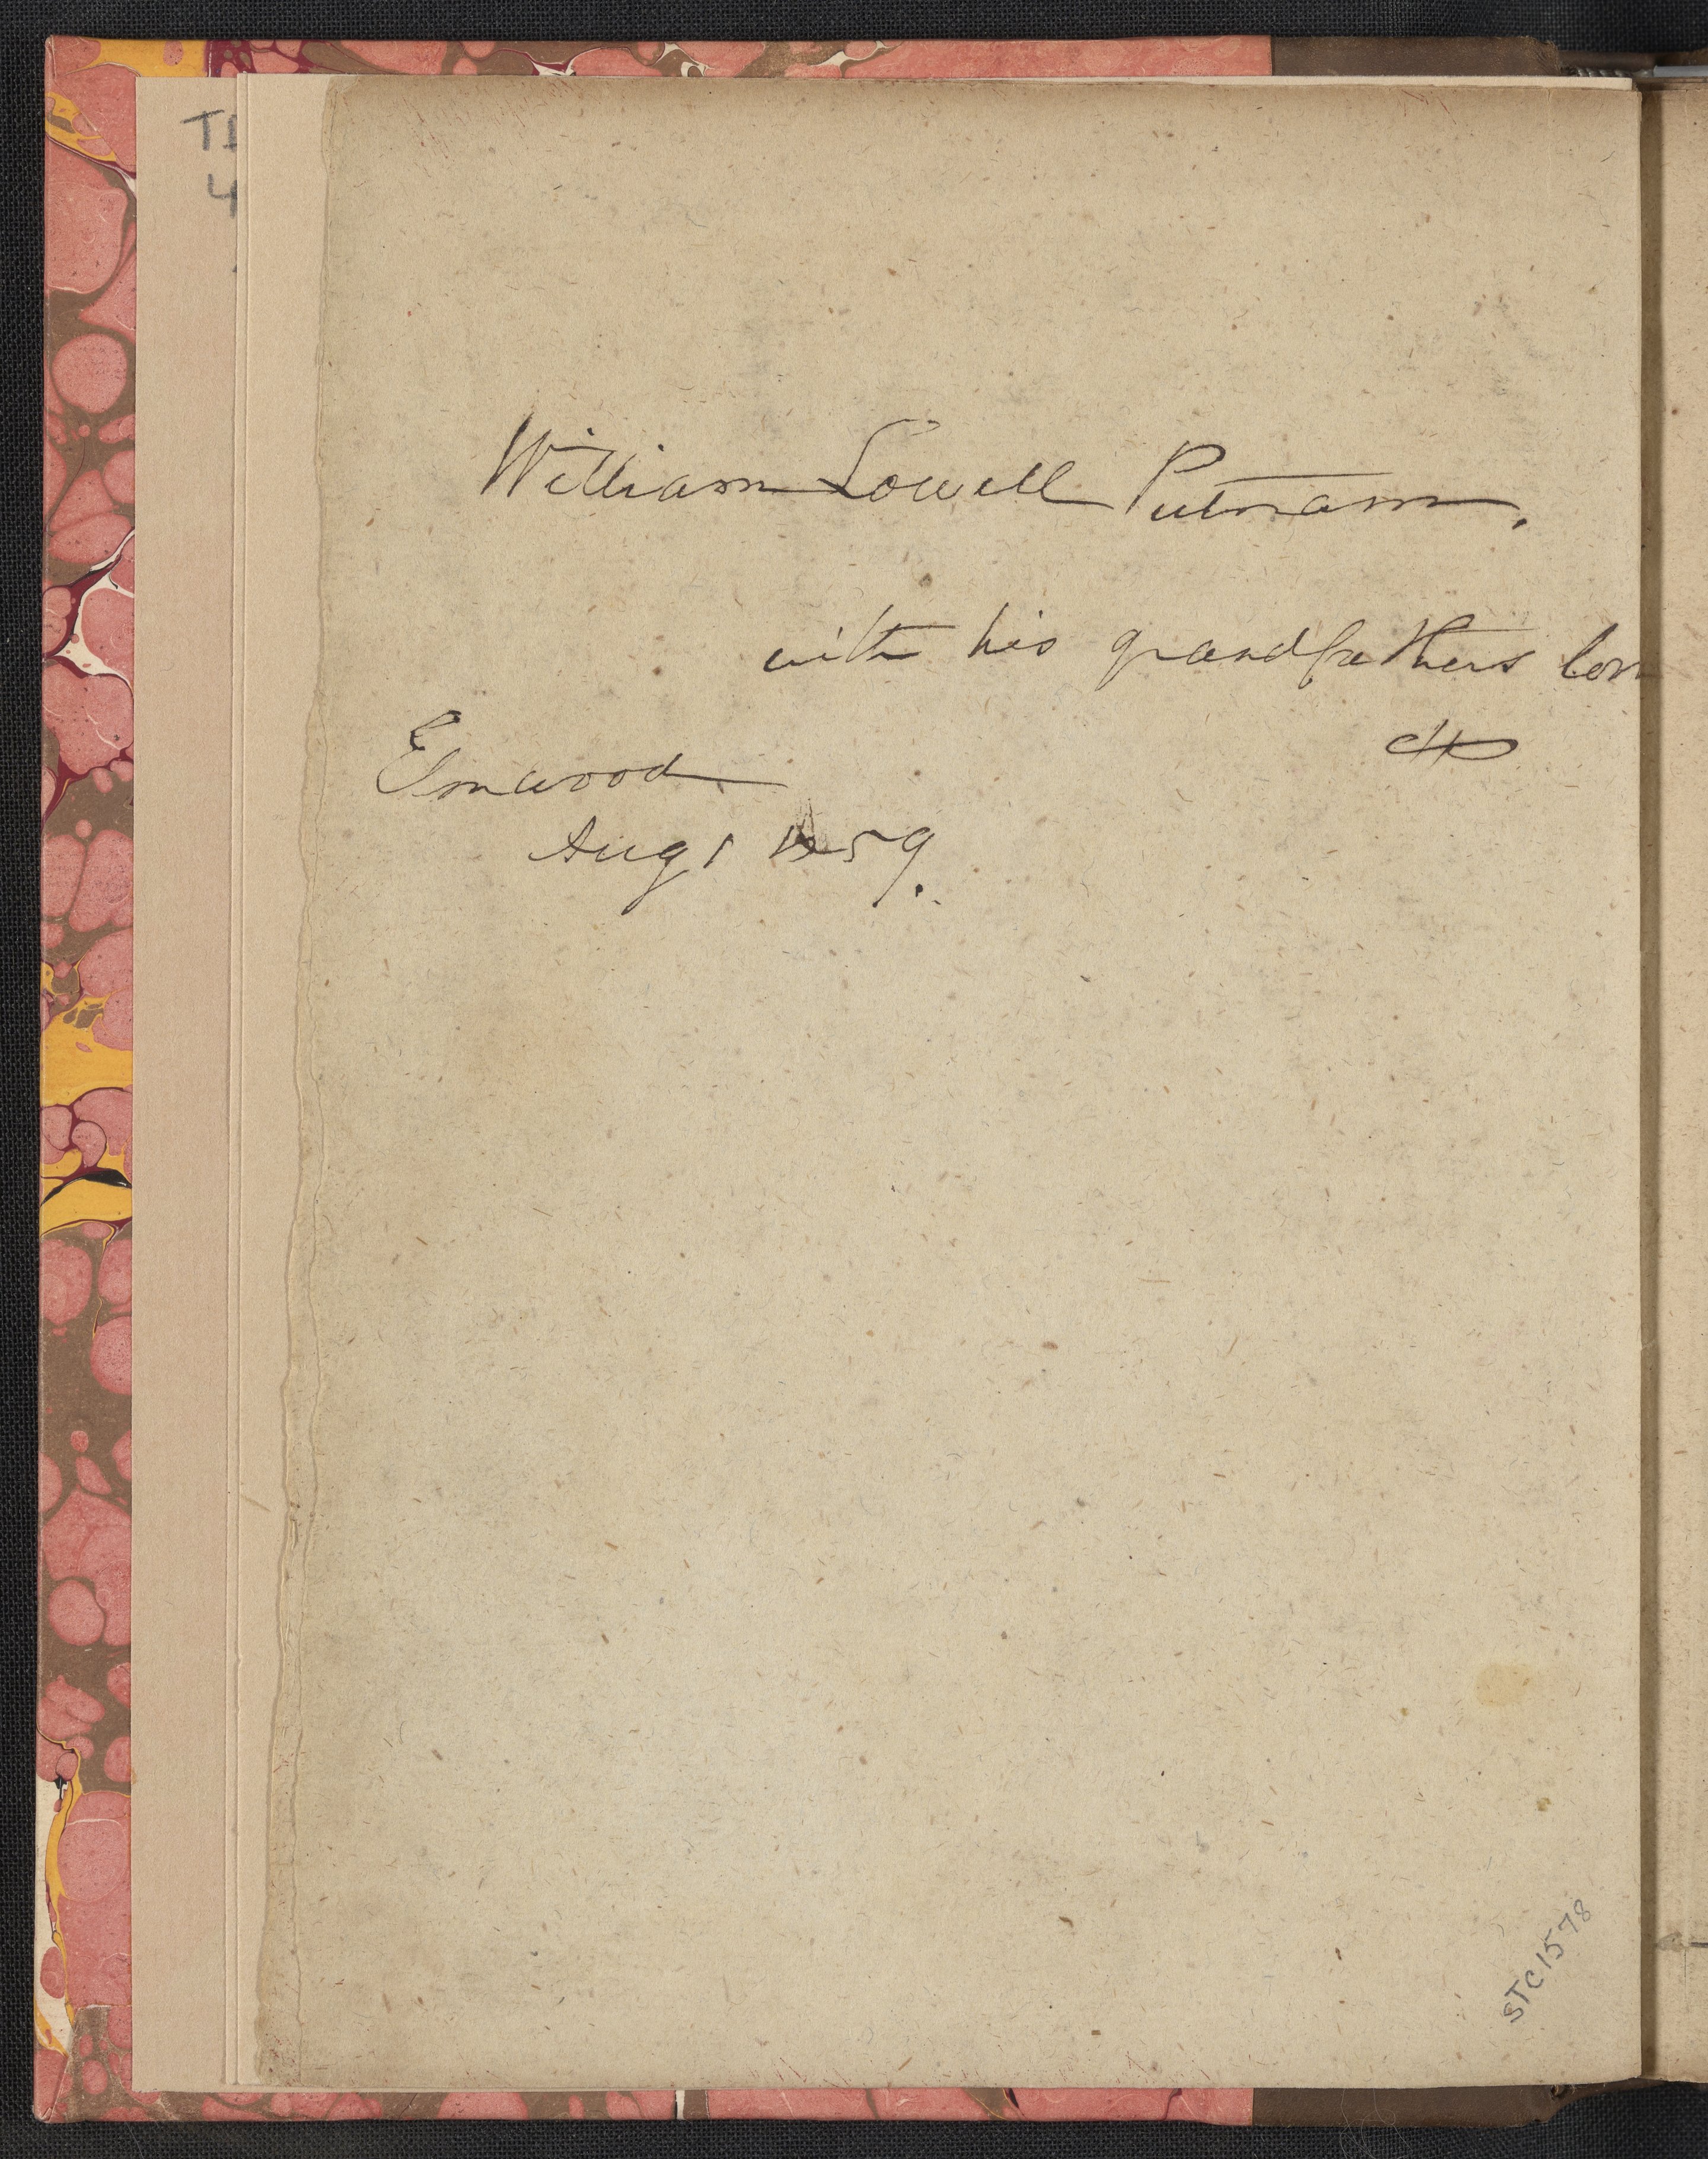 William Lowell Putnam.
with his grandfathers lov
Elmwood
Aug 1 1859.
STC 1578